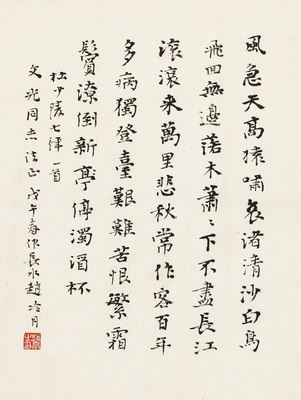 風急天高猿嘯哀渚清沙白鳥
飛回無邊落木蕭〻下不盡長江
滾滾来萬里悲秋常作客百年
多病獨登臺艱難苦恨繁霜
鬢潦倒新亭停濁酒杯
杜少陵七律一首
文光同志法正 戊午春 長水趙冷月